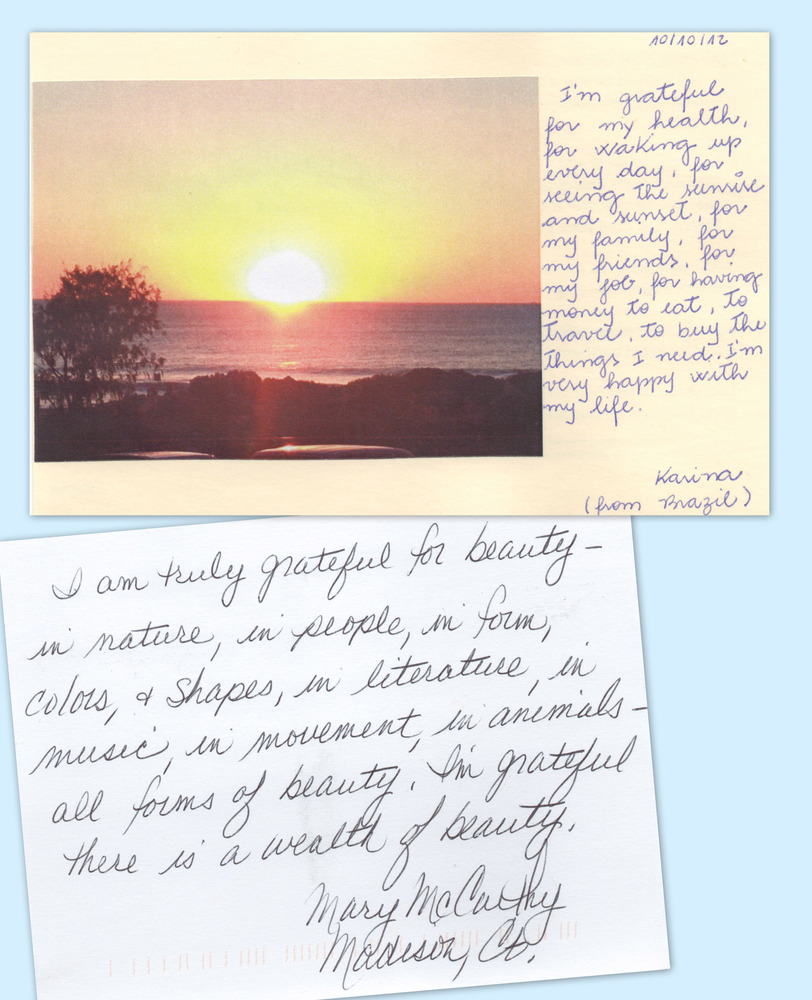 10/10/12
I'm grateful
for my health,
for waking up
every day, for
seeing the sunrise
and sunset, for
my family, for
my friends, for
my job, for having
money to eat, to
travel, to buy the
things I need. I'm
very happy with
my life.
Karina
(from Brazil)
I am truly grateful for beauty-
in nature, in people, in form,
colors, & shapes, in literature, in
music, in movement, in animals-
all forms of beauty. I'm grateful
there is a wealth of beauty.
Mary McCarthy
Madison, Ct.